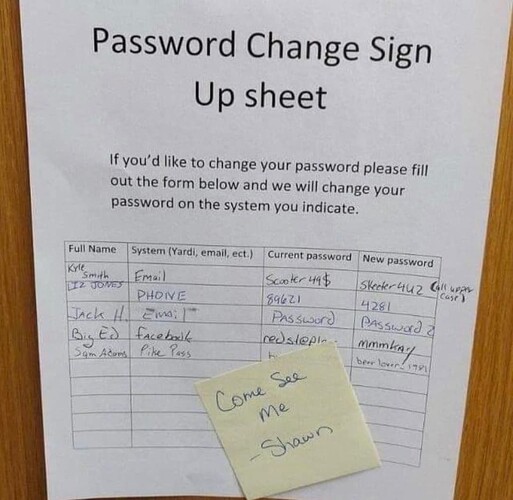 Password Change Sign
Up sheet
If you'd like to change your password please fill
out the form below and we will change your
password on the system you indicate.
Full Name System (Yardi, email, ect.) Current password New password
Kyle Smith Email Scooter49$ Skeeter4U2 (all upper case)
Liz Jones PHONE 89621 4281
Jack H. Email Password PASSWORD 2
Big Ed facebook mmmkay
Sam Adams Pike Pass beerlover1981
Come See
Me
-Shawn